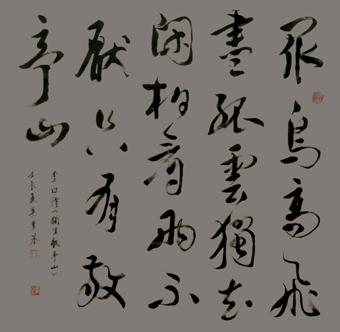 眾鳥高飛
盡孤雲獨去
閑相看兩不
厭只有敬
亭山
李白詩《獨坐敬亭山》